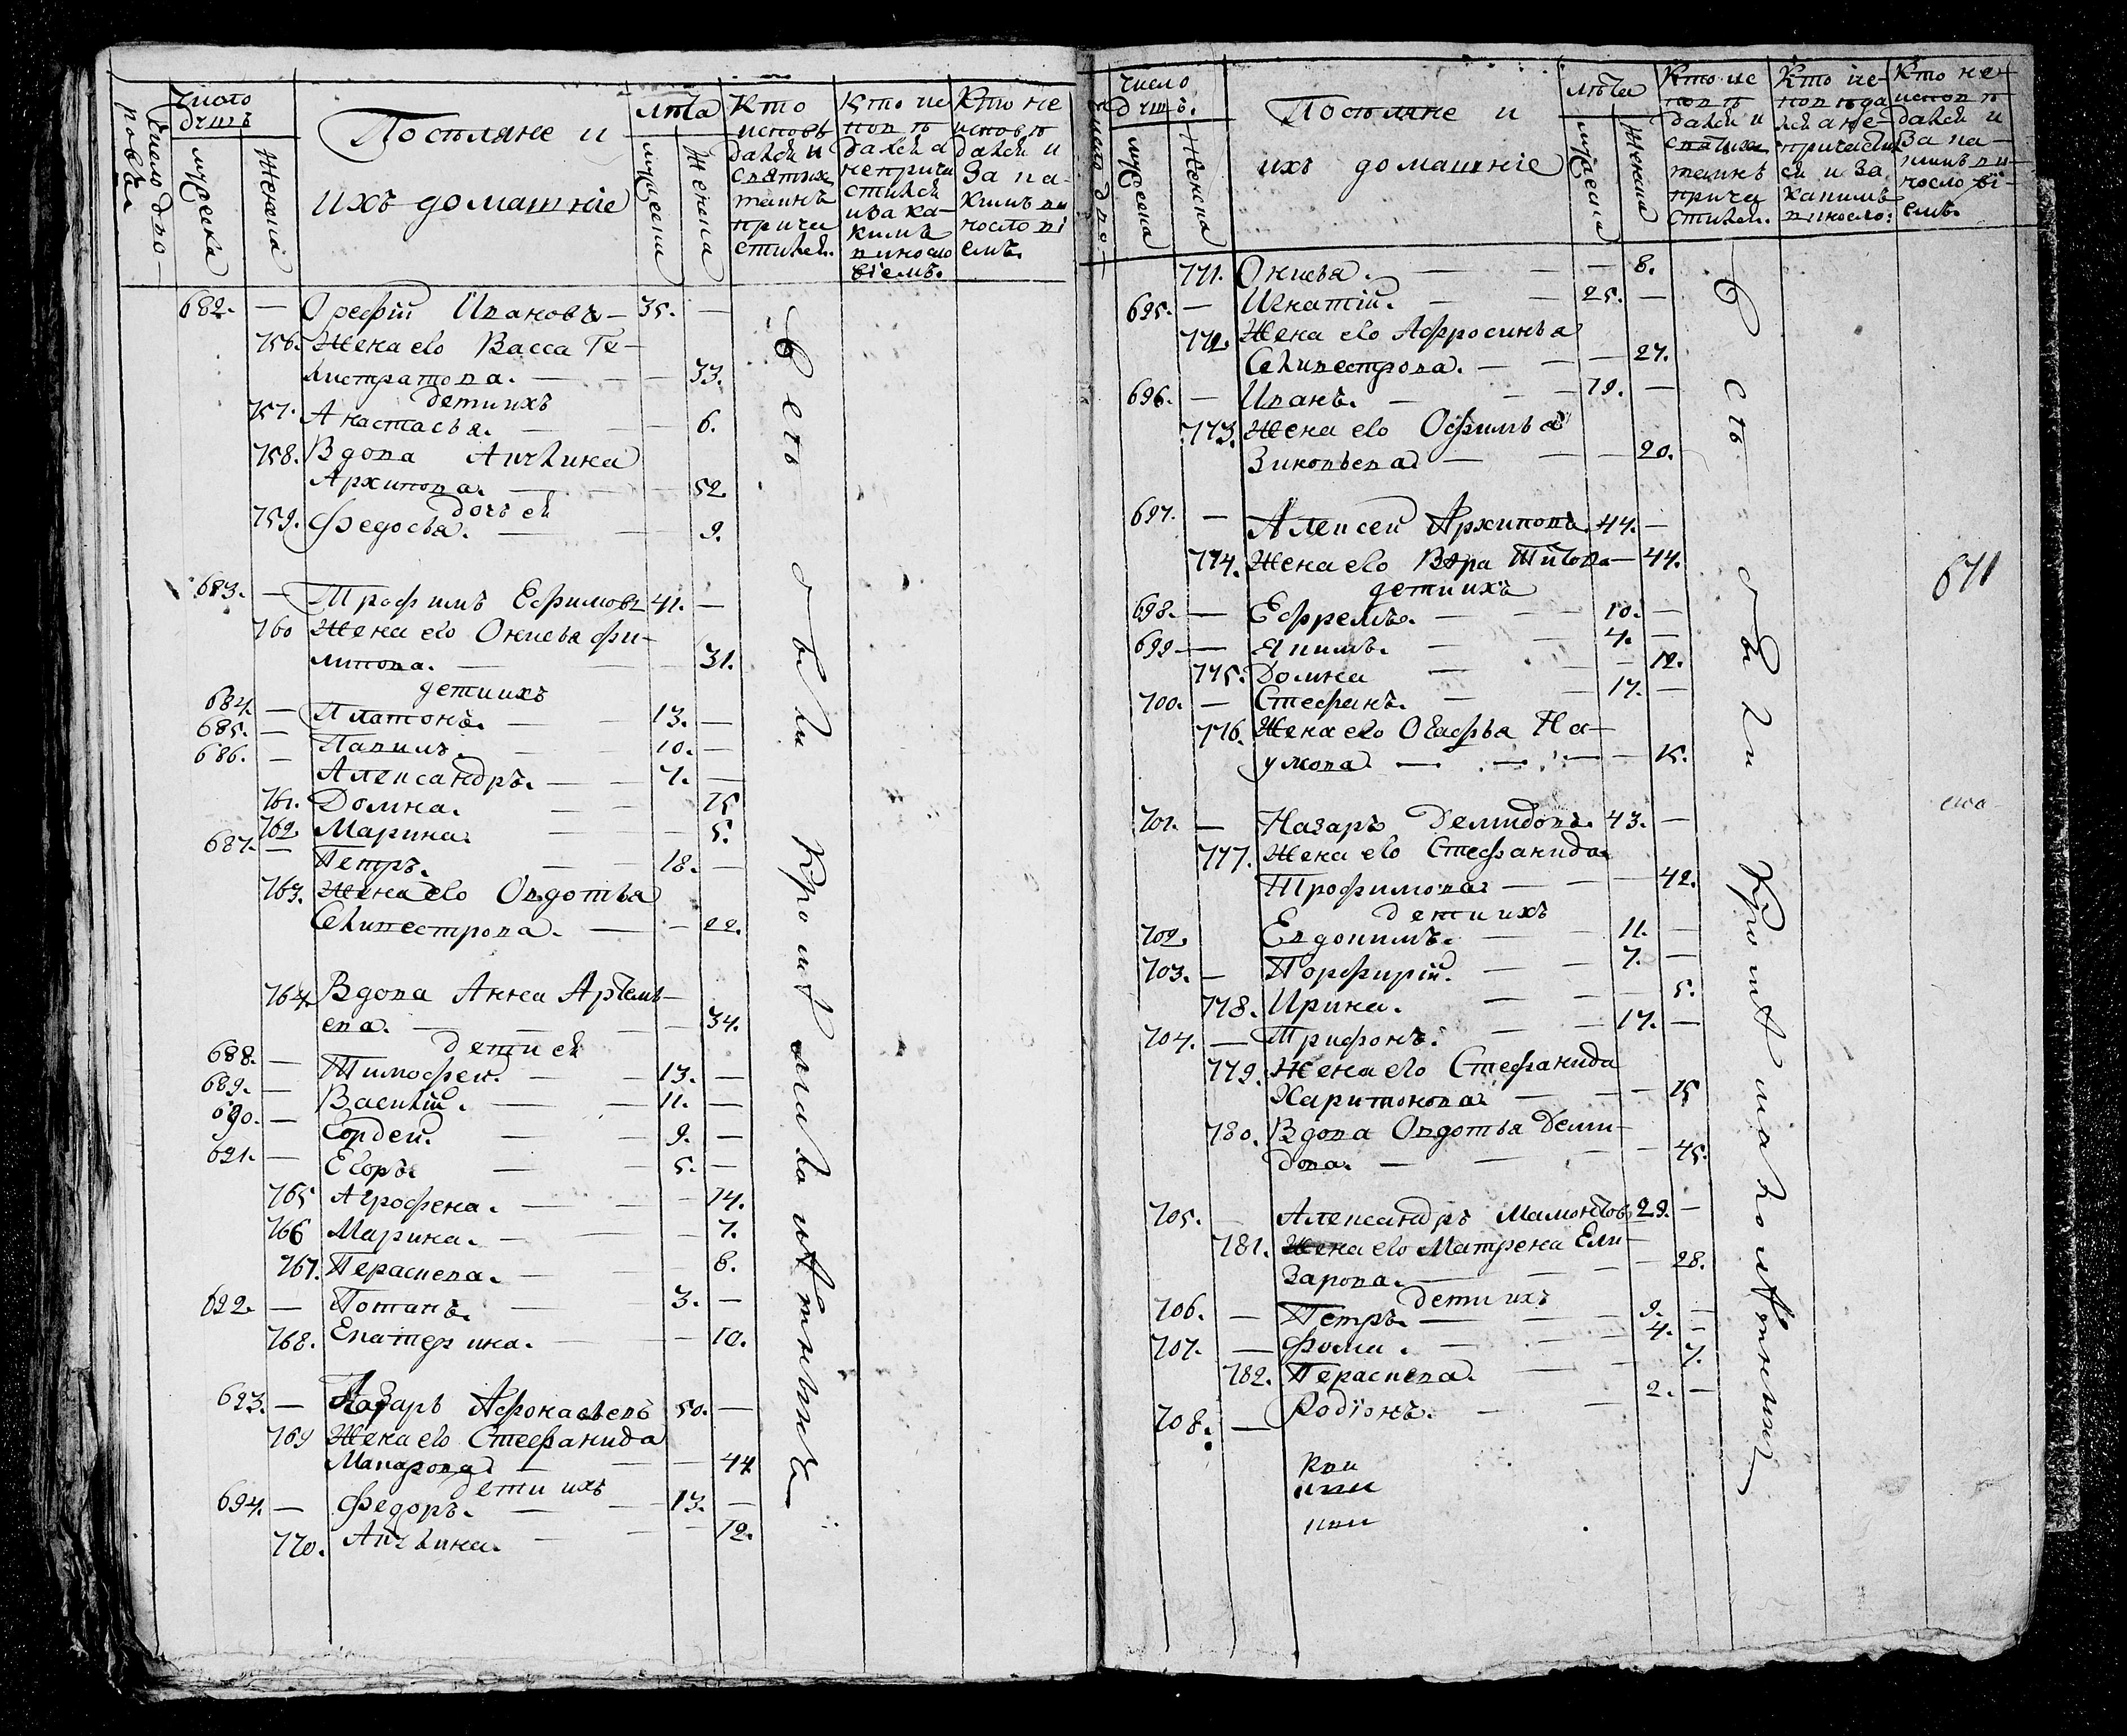 Число дво-
ровъ
Число
дчшъ
мужеска
Женска
Поселяне и
ихъ домашніе
лѣта
мужеска
Женска
Кто
исповѣ
дался и
святыхъ
таинъ
прича
стился.
Кто ис
повѣ
дался а
неприча
стился
и за ка-
кимъ
винсло
віемъ.
Кто не
исповѣ
дался и
за ка-
кимъ ви
нослові
емъ.
682. — Орефій Ивановъ — 35. —
756. Жена его Васса Ге-
листратова. — — 33.
дети ихъ
757. Анастасья. — — 6.
758. Вдова Акулина
Архипова. — — 52.
дочь ея
759. Федосья. — — 9.
683. — Трофимъ Ефимовъ 41. —
760 Жена его Оксинья Фи-
липова. — — 31.
дети ихъ
684. — Платонъ. — 13. —
685. — Вавилъ. — 10. —
686. — Александръ. — 7. —
761. Домна. — — 15
762. Марина. — — 5.
687. — Петръ. — 18. —
763. Жена его Овдотья
Селивестрова. — — 22.
764. Вдова Анна Артемь-
ева. — — 34.
дети ея
688. — Тимофей. — 13. —
689. — Василій. — 11. —
690. — Гордей. — 9. —
691. — Егоръ. — 5. —
765 Агрофена. — — 14.
766 Марина. — — 7.
767. Пераскева. — — 8.
692. — Потапъ. — 3. —
768. Екатерина. — — 10.
693. — Назаръ Афонасьевъ 50. —
769 Жена его Стефанида
Макарова — — 44
дети ихъ
694. — Федоръ. — 13. —
770. Акулина. — — 12.
Всѣ
были
кромѣ малолѣтныхъ
Число дво-
Число
дчшъ.
мужеска
Женска
Поселяне и
ихъ домашніе
лѣта
мужеска
Женска
Кто ис
повѣ
дался и
святыхъ
таинъ
прича
стился.
Кто ис-
повѣда
лся а не-
причасти
ся и за
какимъ
винсло:
Кто не-
исповѣ
дался и
за ка-
кимъ ви-
нослові-
емъ.
771. Оксинья. — — 8.
695. — Игнатій. — 25. —
772. Жена его Афросинья
Селивестрова. — — 27.
696. — Иванъ. — 19. —
773. Жена его Офимья
Зиновьева — — 20.
697. — Алексей Архиповъ. 44. —
774. Жена его Вѣра Титова — 44.
дети ихъ
698. — Ефремъ. — 10. —
699 — Якимъ. — 4. —
775. Домна — — 12.
700. — Стефанъ. — 17. —
776. Жена его Огафья На-
умова — — 15.
701. — Назаръ Демидовъ. 43. —
777. Жена его Стефанида
Трофимова — — 42.
дети ихъ
702. Евдокимъ. — 11. —
703. — Порфирій. — 7. —
778. Ирина. — — 5.
704. — Трифонъ. — 17. —
779. Жена его Стефанида
Харитонова — — 15
780. Вдова Овдотья Деми-
дова. — — 45.
705. — Александръ Мамонтовъ 29. —
781. Жена его Матрена Ели-
зарова. — — 28.
дети ихъ
706. — Петръ. — 9. —
707. — Фома. — 4. —
782. Пераскева. — — 7.
708. — Родіонъ. — 2. —
Всѣ
были
кромѣ малолѣтныхъ
671